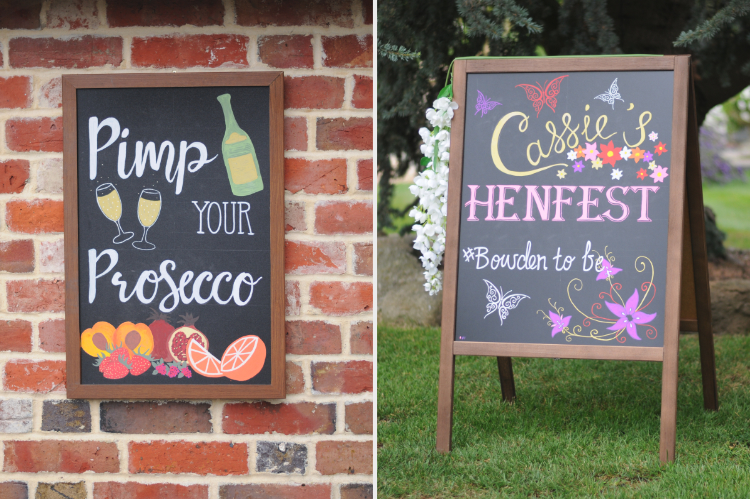 Pimp
YOUR
Prosecco
Cassie's
HENFEST
#Bowden to be